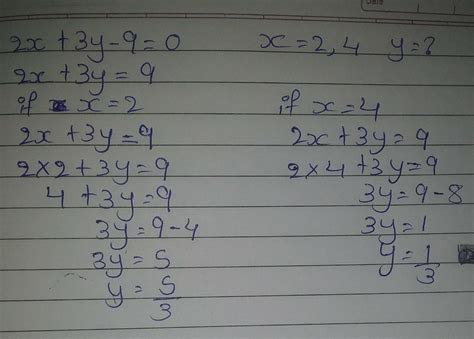 2x + 3y - 9 = 0
2x + 3y = 9
if x = 2
2x + 3y = 9
2 × 2 + 3y = 9
4 + 3y = 9
3y = 9 - 4
3y = 5
y = 5/3
x = 2, 4 y = ?
if x = 4
2x + 3y = 9
2 × 4 + 3y = 9
3y = 9 - 8
3y = 1
y = 1/3